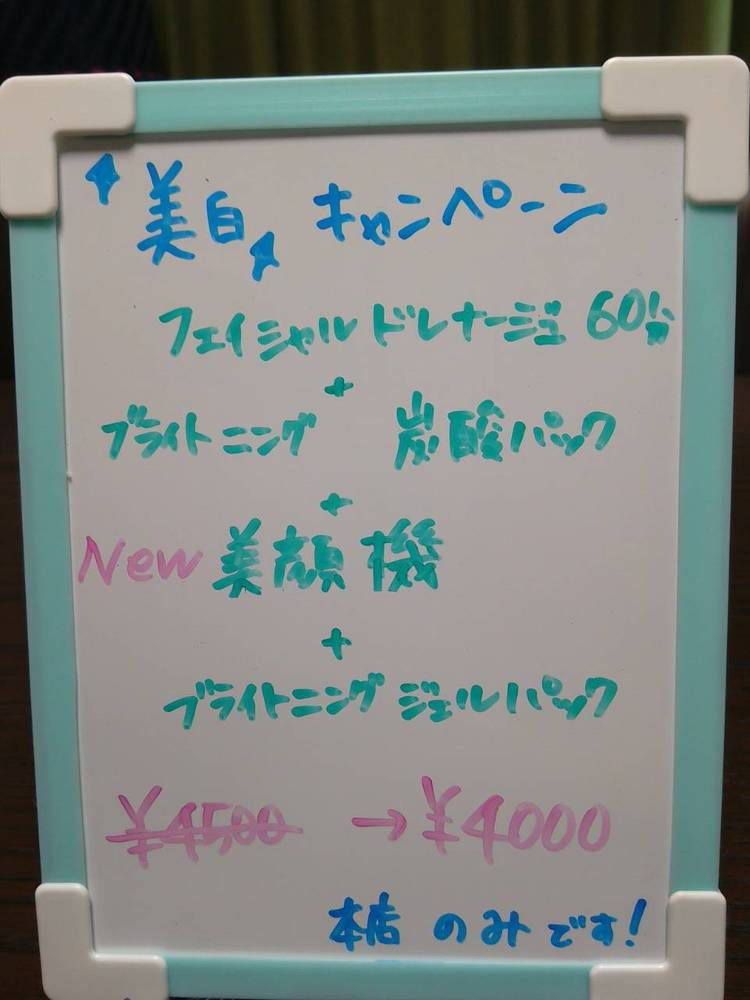 美白 キャンペーン
フェイシャルドレナージュ 60分
+
ブライトニング 炭酸パック
+
New 美顔機
+
ブライトニング ジェルパック
¥4500 → ¥4000
本店 のみです!